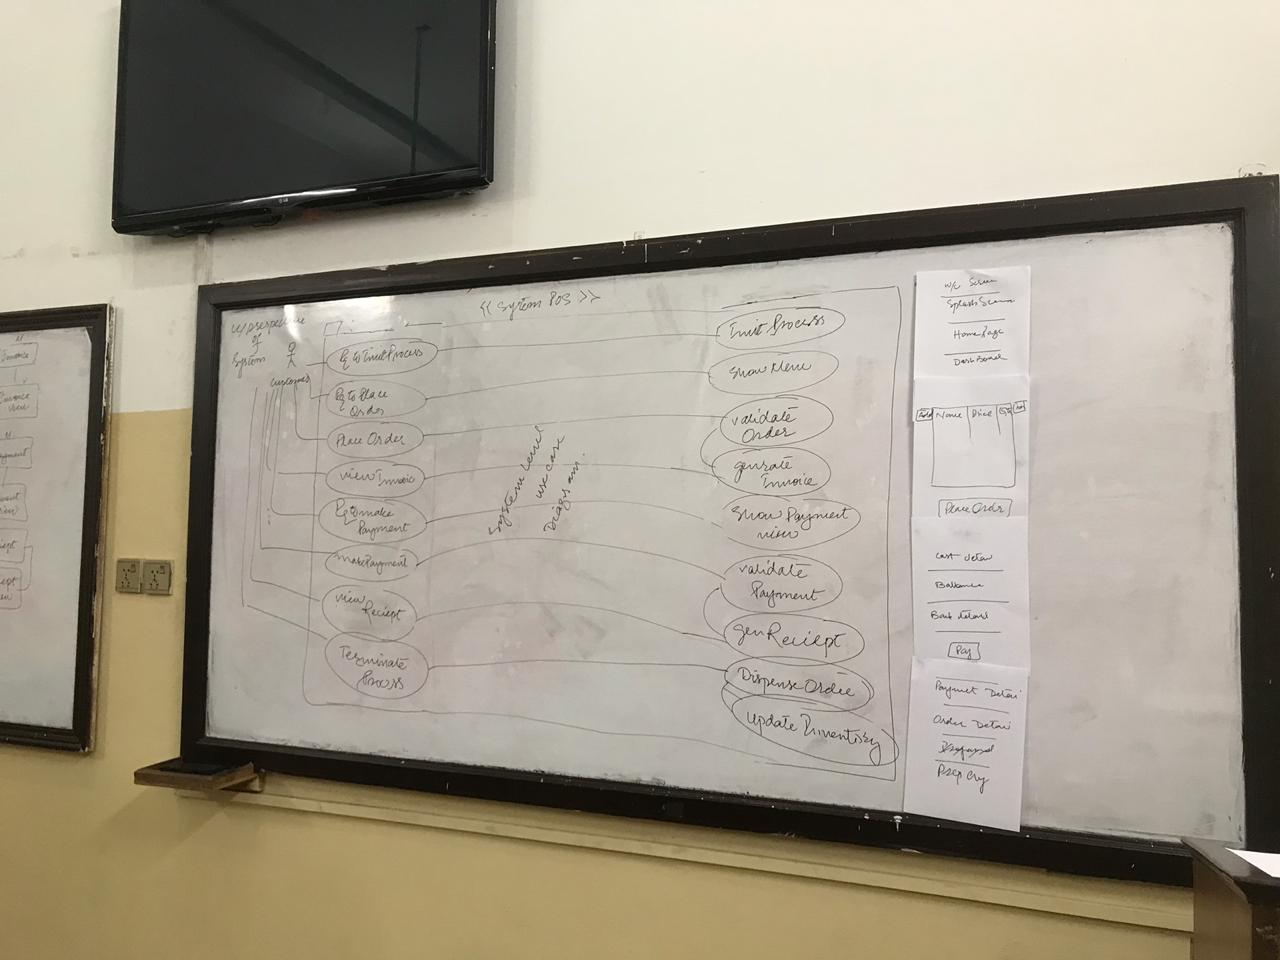 << System POS >>
of
System
customer
Rq to Init Process
Rq to Place
Order
Place Order
view Invoic
Rq to make
Payment
make Payment
view
Reciept
Terminate
Process
System Level
use case
Diagram.
Init Process
Show Menu
validate
Order
genrate
Invoice
Show Payment
view
validate
Payment
gen Reciept
Dispense Order
update Inventory
Splash Screen
Home Page
DashBoard
Add
Name
Price
Place Ordr
Bank details
Pay
Order Detai
Payment
view